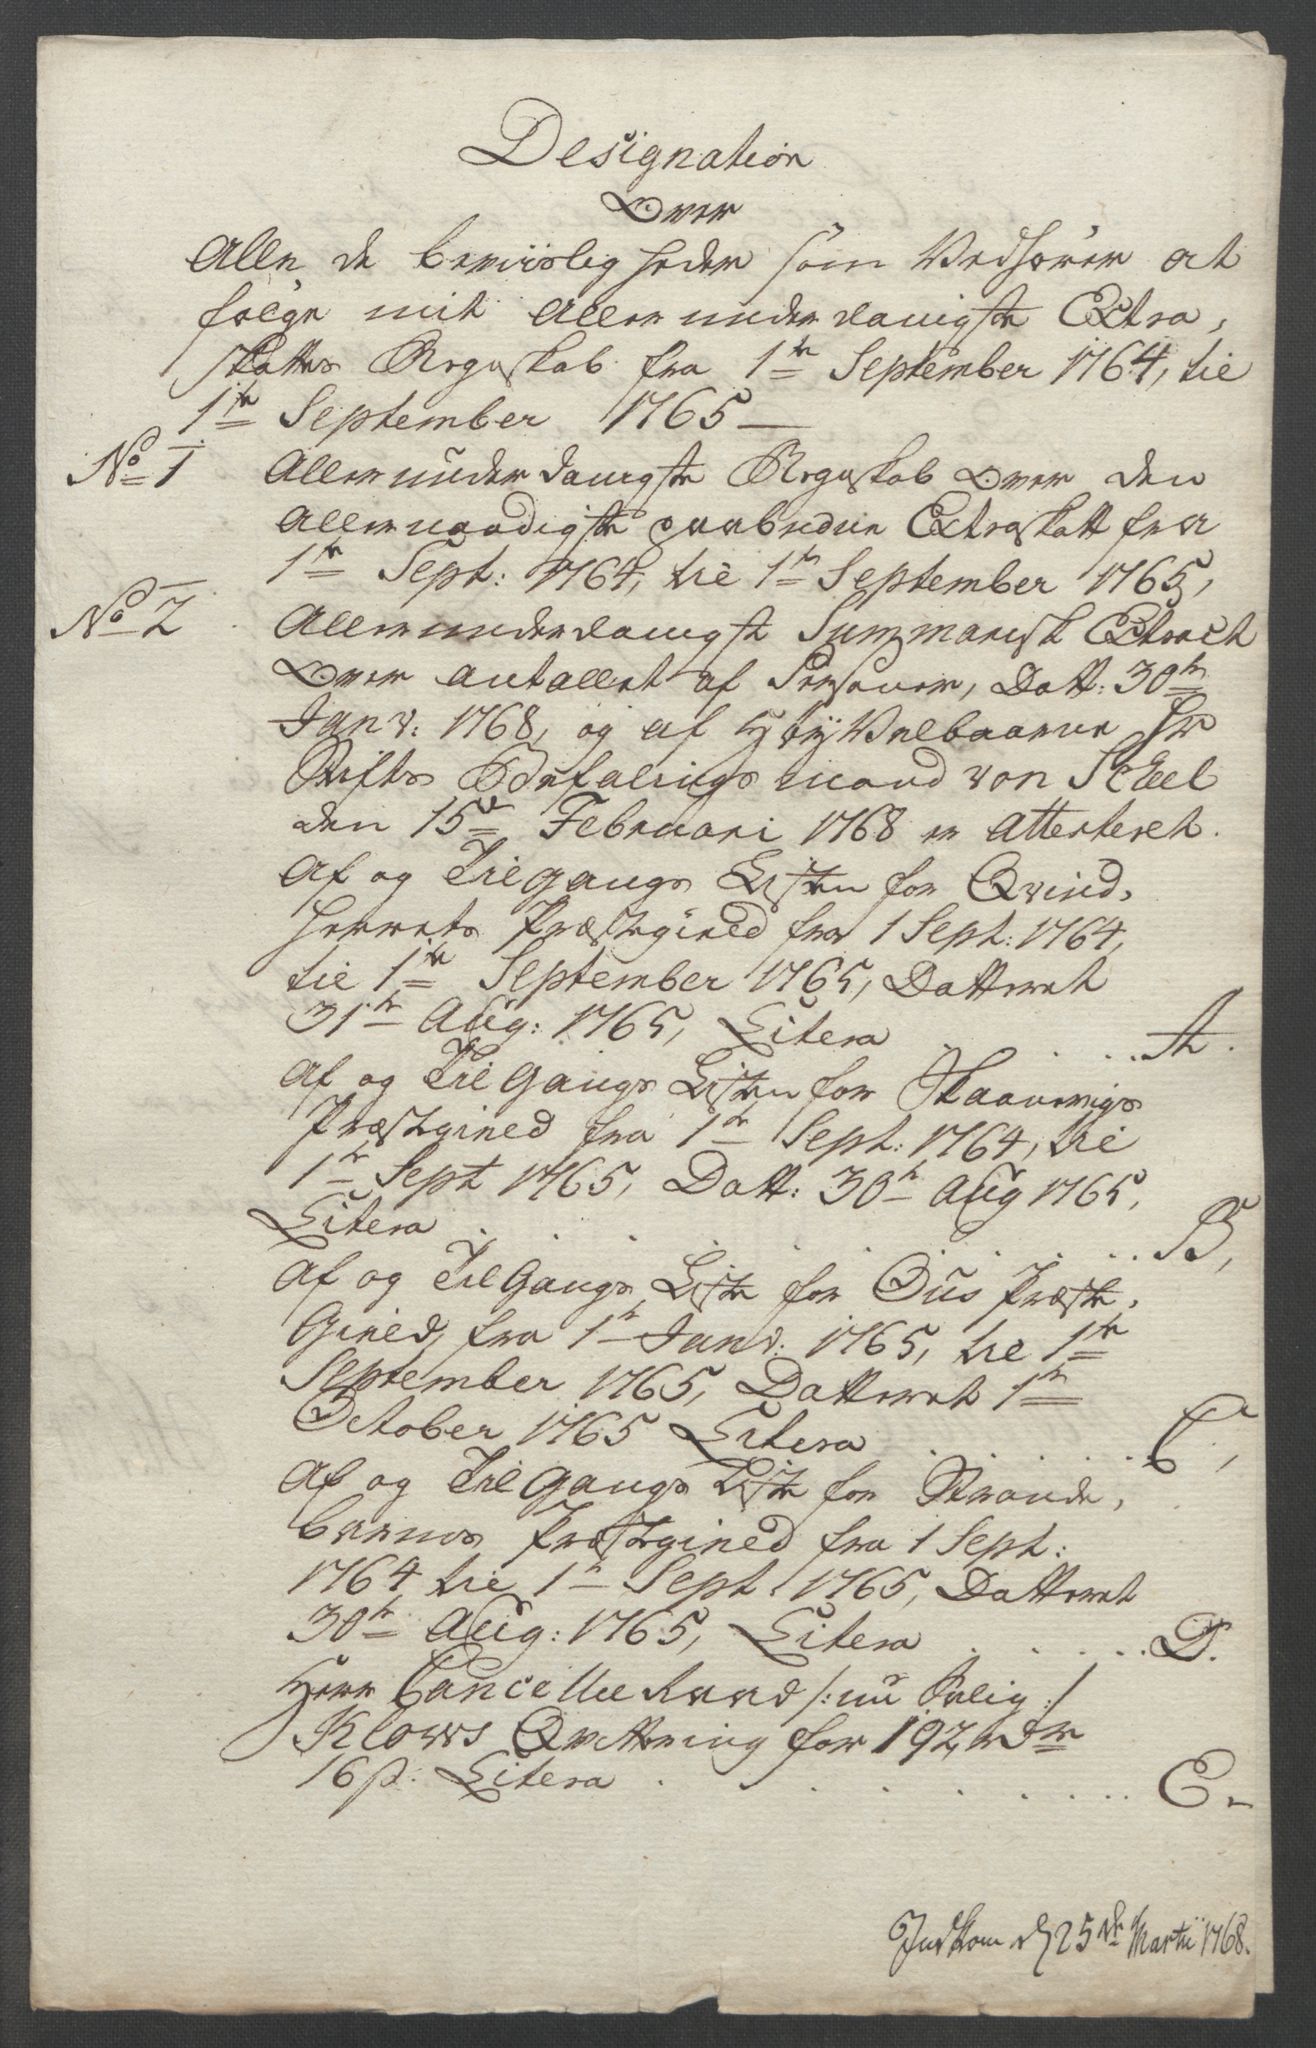 Designation
Over
Alle de beviislig heder som Vedhører at
følge mit Allerunderdanigste Extra,
skattes Regnskab fra 1te September 1764, til
1te September 1765 —
No 1 Allerunderdanigste Regnskab Over den
Allernaadigste paabudne Extraskatt fra
1te Sept: 1764, til 1te September 1765,
No 2 Allerunderdanigst Summarisk Extract
Over Antallet af Persouer, Datt: 30te
Janv: 1768, og af HøyVelbaarne Hr
Stifts Befalings mand von Scheel
den 15de Februari 1768 er Attesteret.
Af og Tilgangs Listen for Qvind,
herrets Præstegield fra 1 Sept: 1764,
til 1te September 1765, Datteret
31te Aug: 1765, Litera . . . . . A.
Af og Til Gangs Listen for Skaanevigs
Præstegield fra 1te Sept: 1764, til
1te Sept 1765, Datt: 30te Aug 1765,
Litera . . . . . . . . . B,
Af og Til Gangs Liste for Ous Præste,
Gield, fra 1te Janv: 1765, til 1te
September 1765, Datteret 1te
October 1765 Litera . . . . . . C,
Af og Til Gangs Liste for Strande,
barms Præstegield fra 1 Sept:
1764 til 1te Sept: 1765, Datteret
30te Aug: 1765, Litera . . . . . D.
Herr Cancellie Raad /: nu Salig :/
Klows Qvittering for 192 rdr
16 s: Litera . . . . . . . E.
Indkom d 25de Martii 1768.